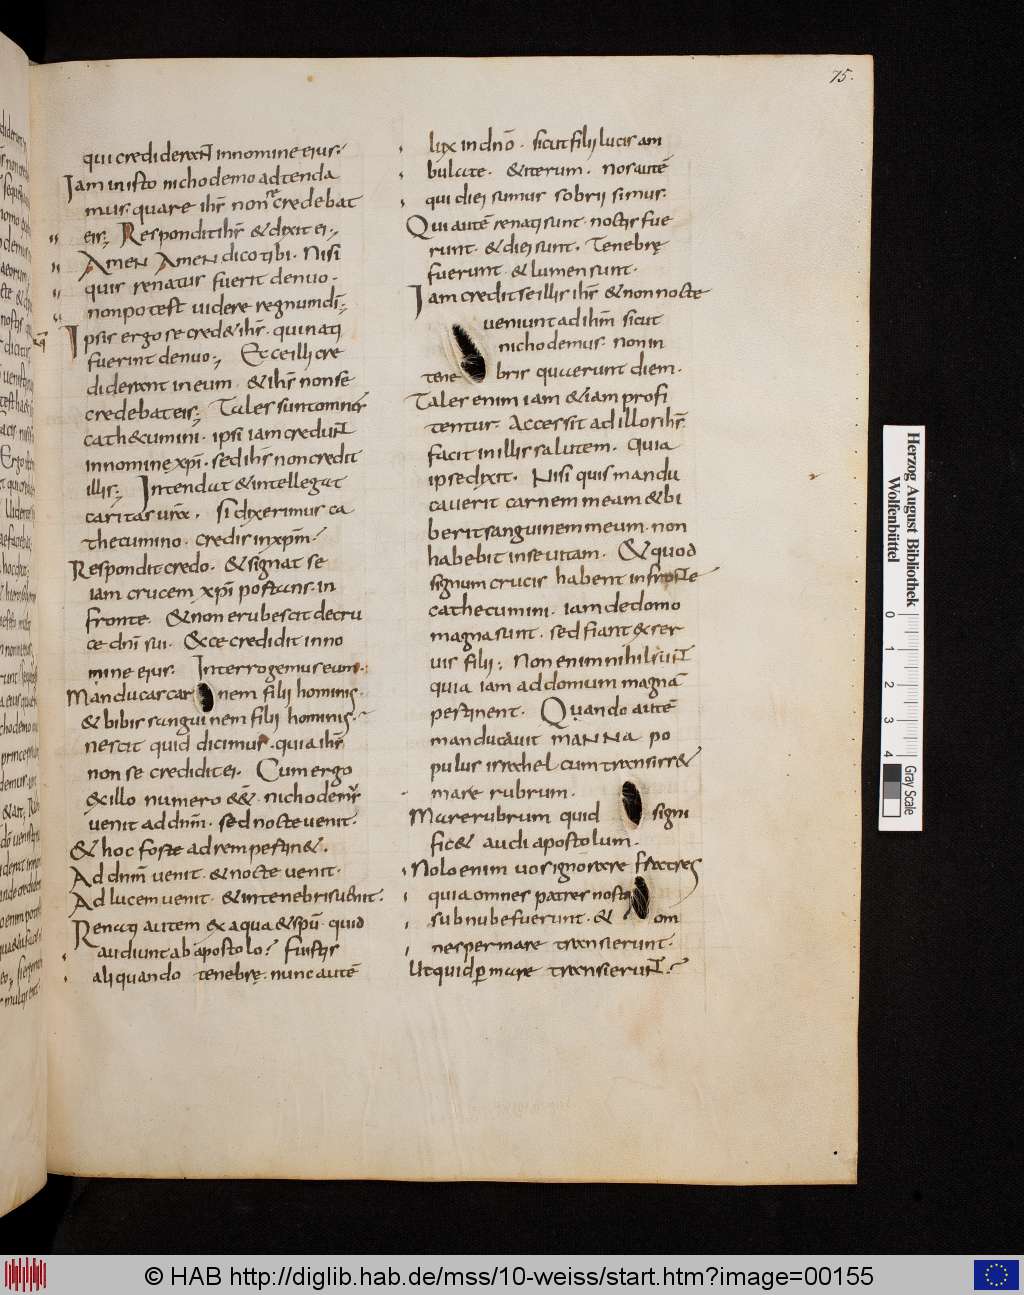 75.
qui crediderunt innomine eius.
Iam in isto nichodemo adtenda
mus. quare ihs̄ non se credebat
eis; Respondit ihs̄ & dixit ei.,
Amen Amen dico tibi. Nisi
quis renatus fuerit denuo.
non potest uidere regnum dī;
Ipsis ergo se cred& ihs̄. qui nati
fuerint denuo., Ecce illi cre
diderant in eum. & ihs̄ non se
credebat eis; Tales sunt omnes
cath&cumini. ipsi iam credunt
in nomine xpī. sed ihs̄ non credit
illis; Intendat & intellegat
caritas urā. Si dixerimus ca
thecumino. credis in xpm̄.
Respondit credo. & signat se
iam crucem xpī portans. in
fronte. & non erubescit de cru
ce dnī sui. Ecce credidit in no
mine eius. Interrogemus eum.
Manducas car nem filii hominis.
& bibis sanguinem filii hominis.
nescit quid dicimus. quia ihs̄
non se credidit ei. Cum ergo
ex illo numero e&̄. nichodemus
uenit ad dnm̄. sed nocte uenit.
& hoc forte ad rem pertin&.
Ad dnm̄ uenit. & nocte uenit.
Ad lucem uenit. & in tenebris uenit.
Renati autem ex aqua & spū. quid
audiunt ab apostolo? Fuistis
aliquando tenebrę. nunc autē
lux in dnō. sicut filii lucis am
bulate. & iterum. nos autē
qui diei sumus sobrii simus.
Qui autē renati sunt. noctis fue
runt. & diei sunt. Tenebrę
fuerunt. & lumen sunt.
Iam credit se illis ihs̄ & non nocte
ueniunt ad ihm̄ sicut
nichodemus. non in
tene bris quaerunt diem.
Tales enim iam & iam profi
tentur. Accessit ad illos ihs̄.
facit in illis salutem. Quia
ipse dixit. Nisi quis mandu
cauerit carnem meam & bi
berit sanguinem meum. non
habebit in se uitam. Et quod
signum crucis habent in fronte
cathecumini. iam de domo
magna sunt. sed fiant ex ser
uis filii; Non enim nihil sunt
quia iam ad domum magnā
pertinent. Quando autē
manducauit manna po
pulus israhel cum transirr&
mare rubrum.
Mare rubrum quid signi
fic& audi apostolum.
Nolo enim uos ignorare fratres
quia omnes patres nostri
sub nube fuerunt. & om
nes per mare transierunt.
Ut quid p mare transierunt?
Herzog August Bibliothek
Wolfenbüttel
0 1 2 3 4
Gray Scale
© HAB http://diglib.hab.de/mss/10-weiss/start.htm?image=00155